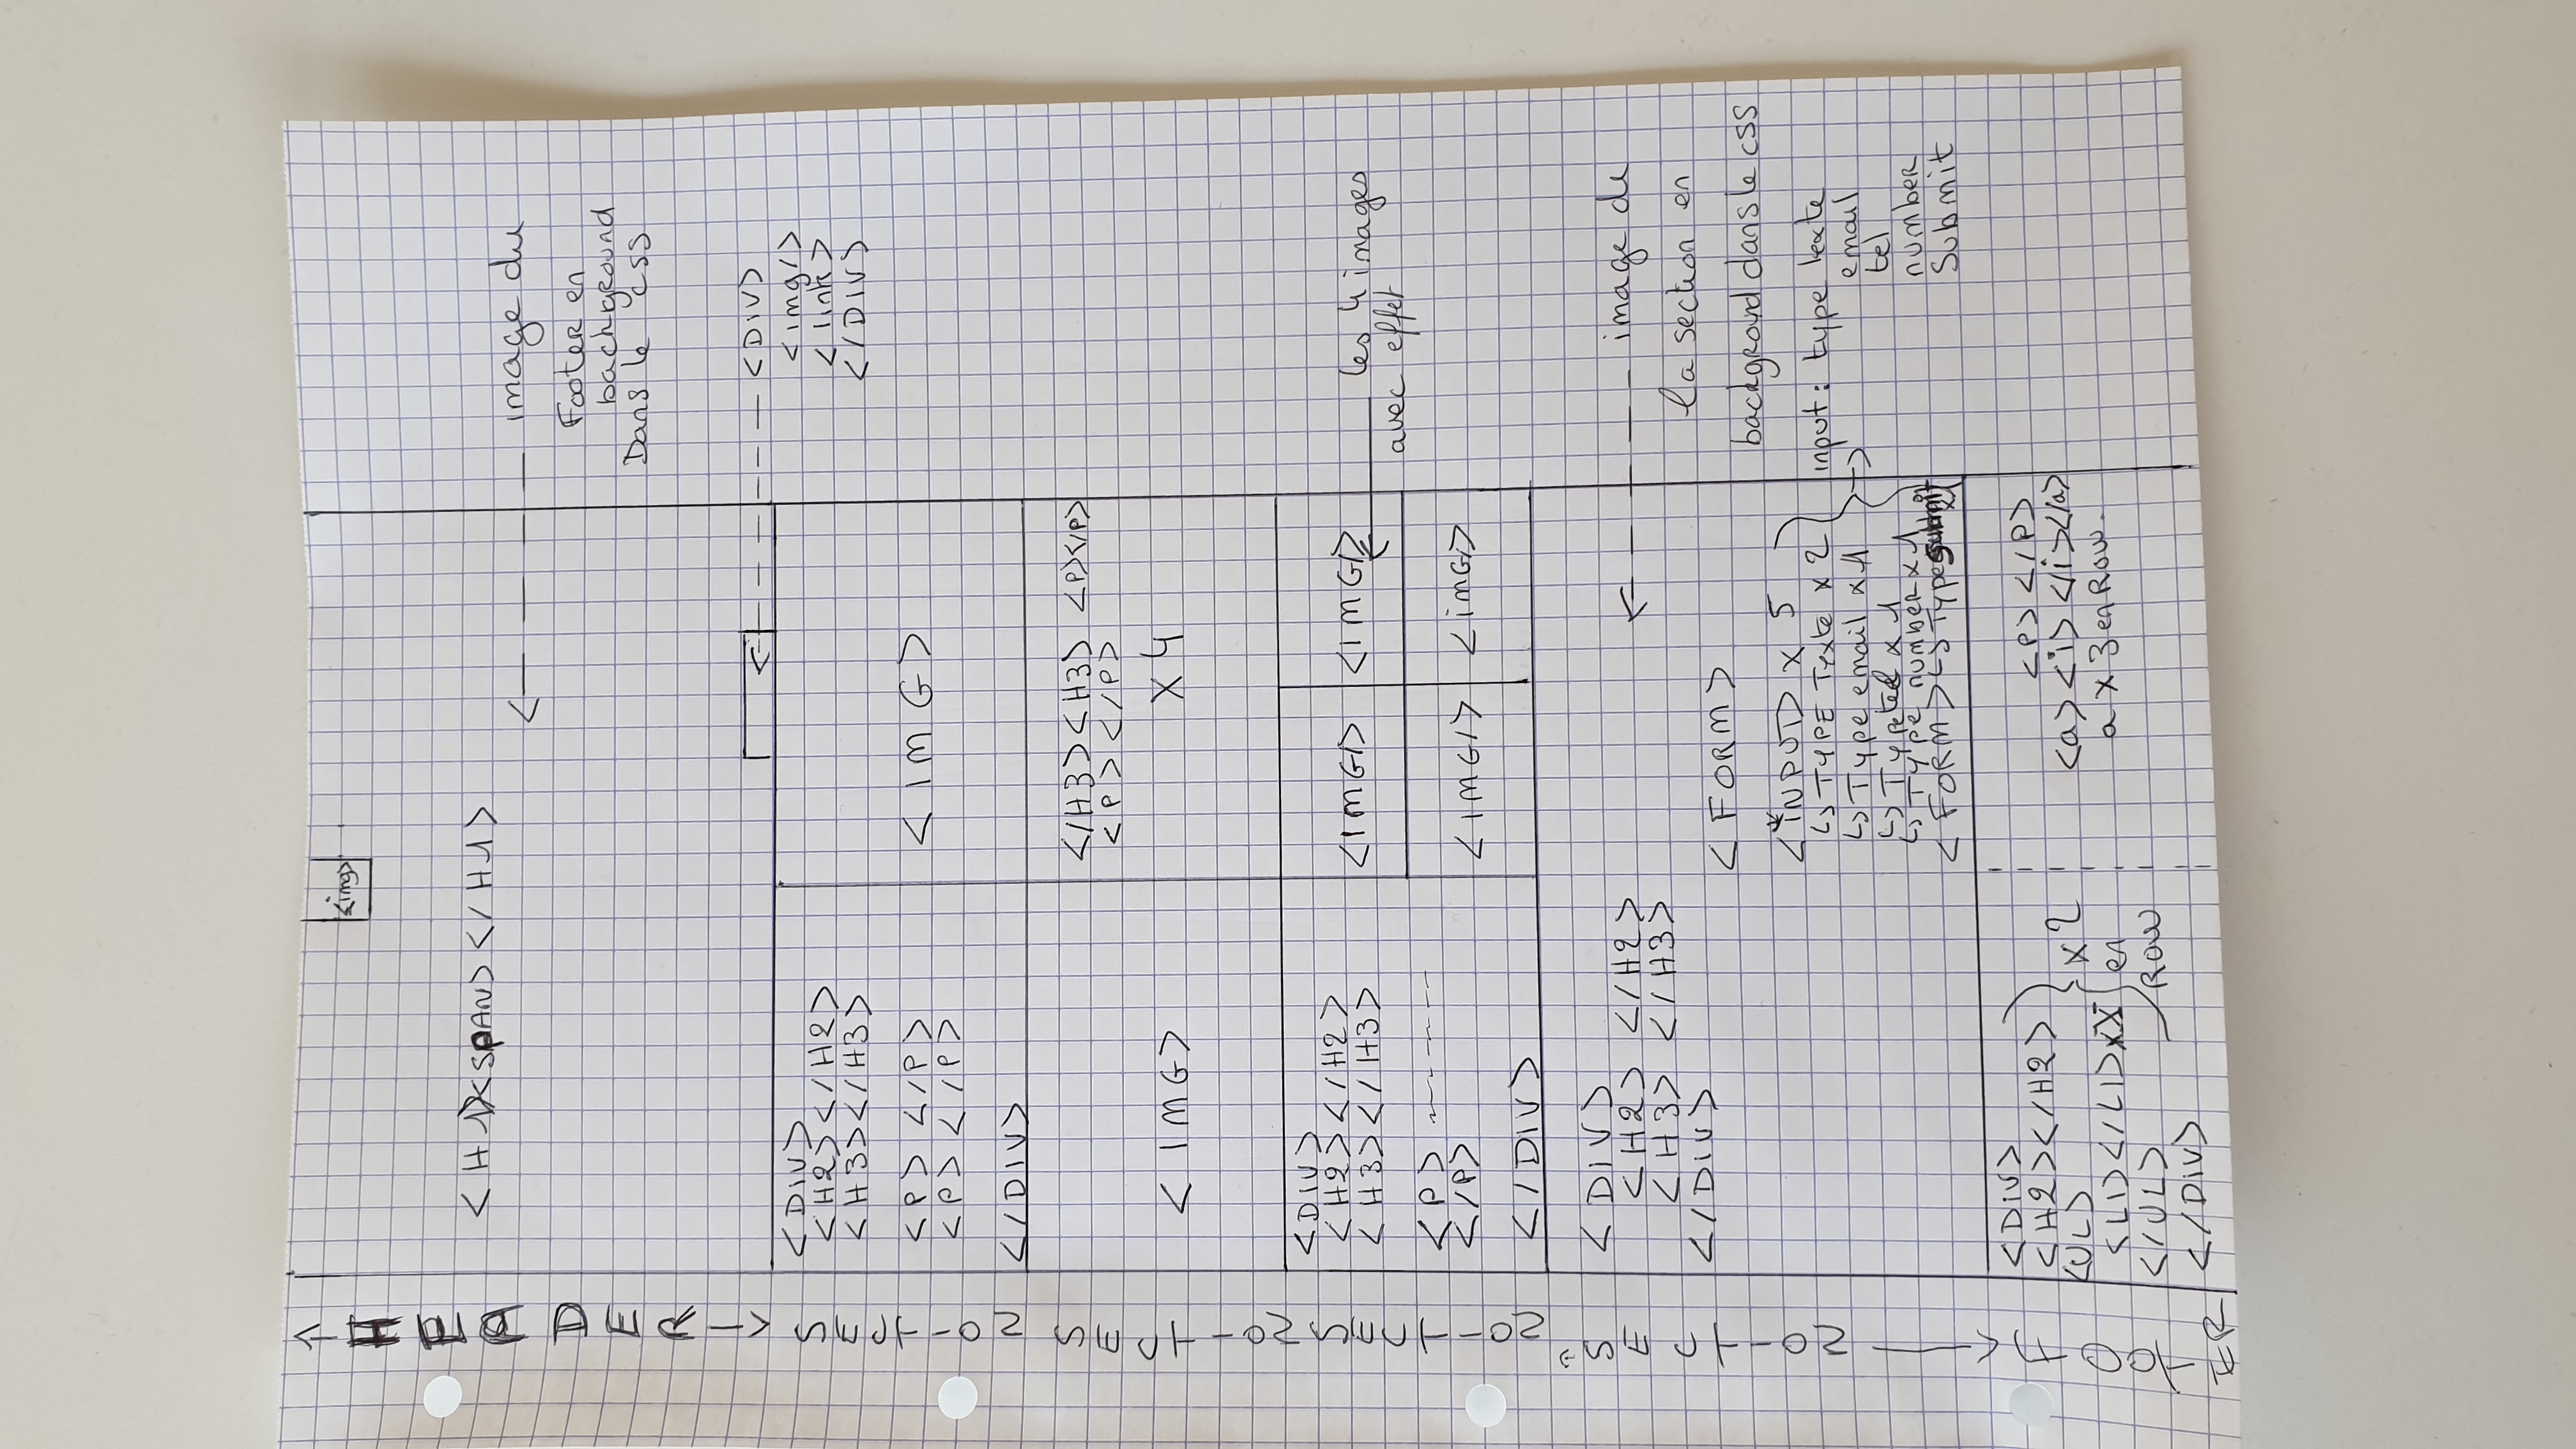 HEADER
<img>
<H1><SPAN></H1>
image du
Footer en
background
Dans le css
<DIV>
<img/>
<link>
</DIV>
SECTION
<DIV>
<H2></H2>
<H3></H3>
<P> </P>
<P> </P>
</DIV>
<IMG>
SECTION
<IMG>
</H3><H3> <P></P>
<P></P>
X 4
SECTION
<DIV>
<H2></H2>
<H3></H3>
<P> -------
</P>
</DIV>
<IMG/> <IMG/>
<IMG/> <iMG/>
les 4 images
avec effet
SECTION
<DIV>
<H2> </H2>
<H3> </H3>
</DIV>
image de
la section en
backgrond dans le css
<FORM>
<INPUT> x 5
↳ TYPE Texte x 2
↳ Type email x 1
↳ Type tel x 1
↳ Type number x 1
<FORM> ↳ Type submit x1
input: type texte
email
tel
number
Submit
FOOTER
<DIV>
<H2></H2>
<UL>
<LI></LI>xX
</UL>
</DIV>
x 2
en
ROW
<P></P>
<a><i></i></a>
a x 3 en Row.